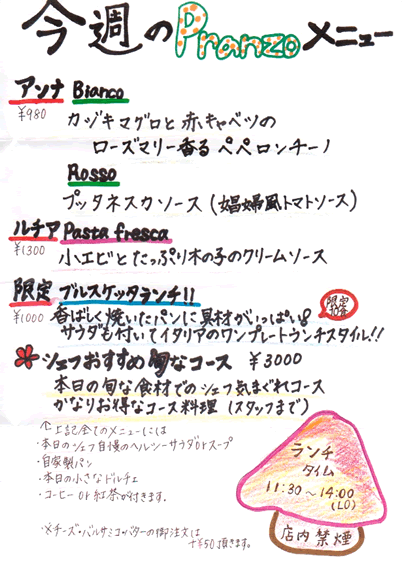 今週のPranzoメニュー
アンナ Bianco
¥980
カジキマグロと赤キャベツの
ローズマリー香るペペロンチーノ
Rosso
プッタネスカソース(娼婦風トマトソース)
ルチア Pasta fresca
¥1300
小エビとたっぷり木の子のクリームソース
限定 ブルスケッタランチ!!
¥1000
香ばしく焼いたパンに具材がいっぱい!
限定
10食
サラダも付いてイタリアのワンプレートランチスタイル!!
シェフおすすめ旬なコース ¥3000
本日の旬な食材でのシェフ気まぐれコース
かなりお得なコース料理(スタッフまで)
↑上記全てのメニューには
・本日のシェフ自慢のヘルシーサラダorスープ
・自家製パン
・本日の小さなドルチェ
・コーヒーor紅茶が付きます。
・※チーズ・バルサミコ・バターの御注文は
+¥50頂きます。
ランチ
タイム
11:30~14:00
(LO)
店内禁煙